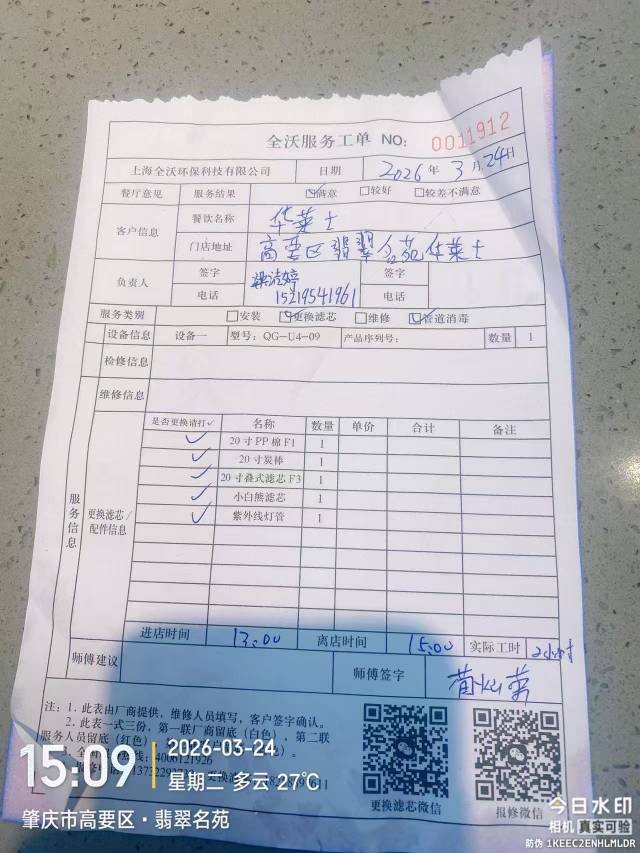 全沃服务工单 NO: 0011912
上海全沃环保科技有限公司 日期 2026年 3月24日
餐厅意见 服务结果 ☑满意 □较好 □较差不满意
客户信息 餐饮名称 华莱士
门店地址 高要区翡翠名苑华莱士
负责人 签字 梁洁婷 签字
电话 15219541961 电话
服务类别 □安装 ☑更换滤芯 □维修 ☑管道消毒
设备信息 设备一 型号: QG-U4-09 产品序列号: 数量 1
检修信息
维修信息
服务信息
更换滤芯/配件信息
是否更换请打√ 名称 数量 单价 合计 备注
✓ 20寸PP棉F1 1
✓ 20寸炭棒 1
✓ 20寸叠式滤芯F3 1
✓ 小白熊滤芯 1
✓ 紫外线灯管 1
进店时间 13:00 离店时间 15:00 实际工时 2小时
师傅建议 师傅签字
注: 1. 此表由厂商提供, 维修人员填写, 客户签字确认。
2. 此表一式三份, 第一联厂商留底(白色), 第二联
服务人员留底(红色)
4006121926
更换滤芯微信 报修微信
15:09 2026-03-24
星期二 多云 27℃
肇庆市高要区·翡翠名苑
今日水印
相机 真实可验
防伪 1KEEC2ENHLMLDR